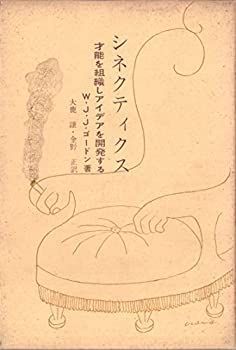 シネクティクス
才能を組織しアイデアを開発する
W・J・J・ゴードン著
大鹿 譲・金野 正訳